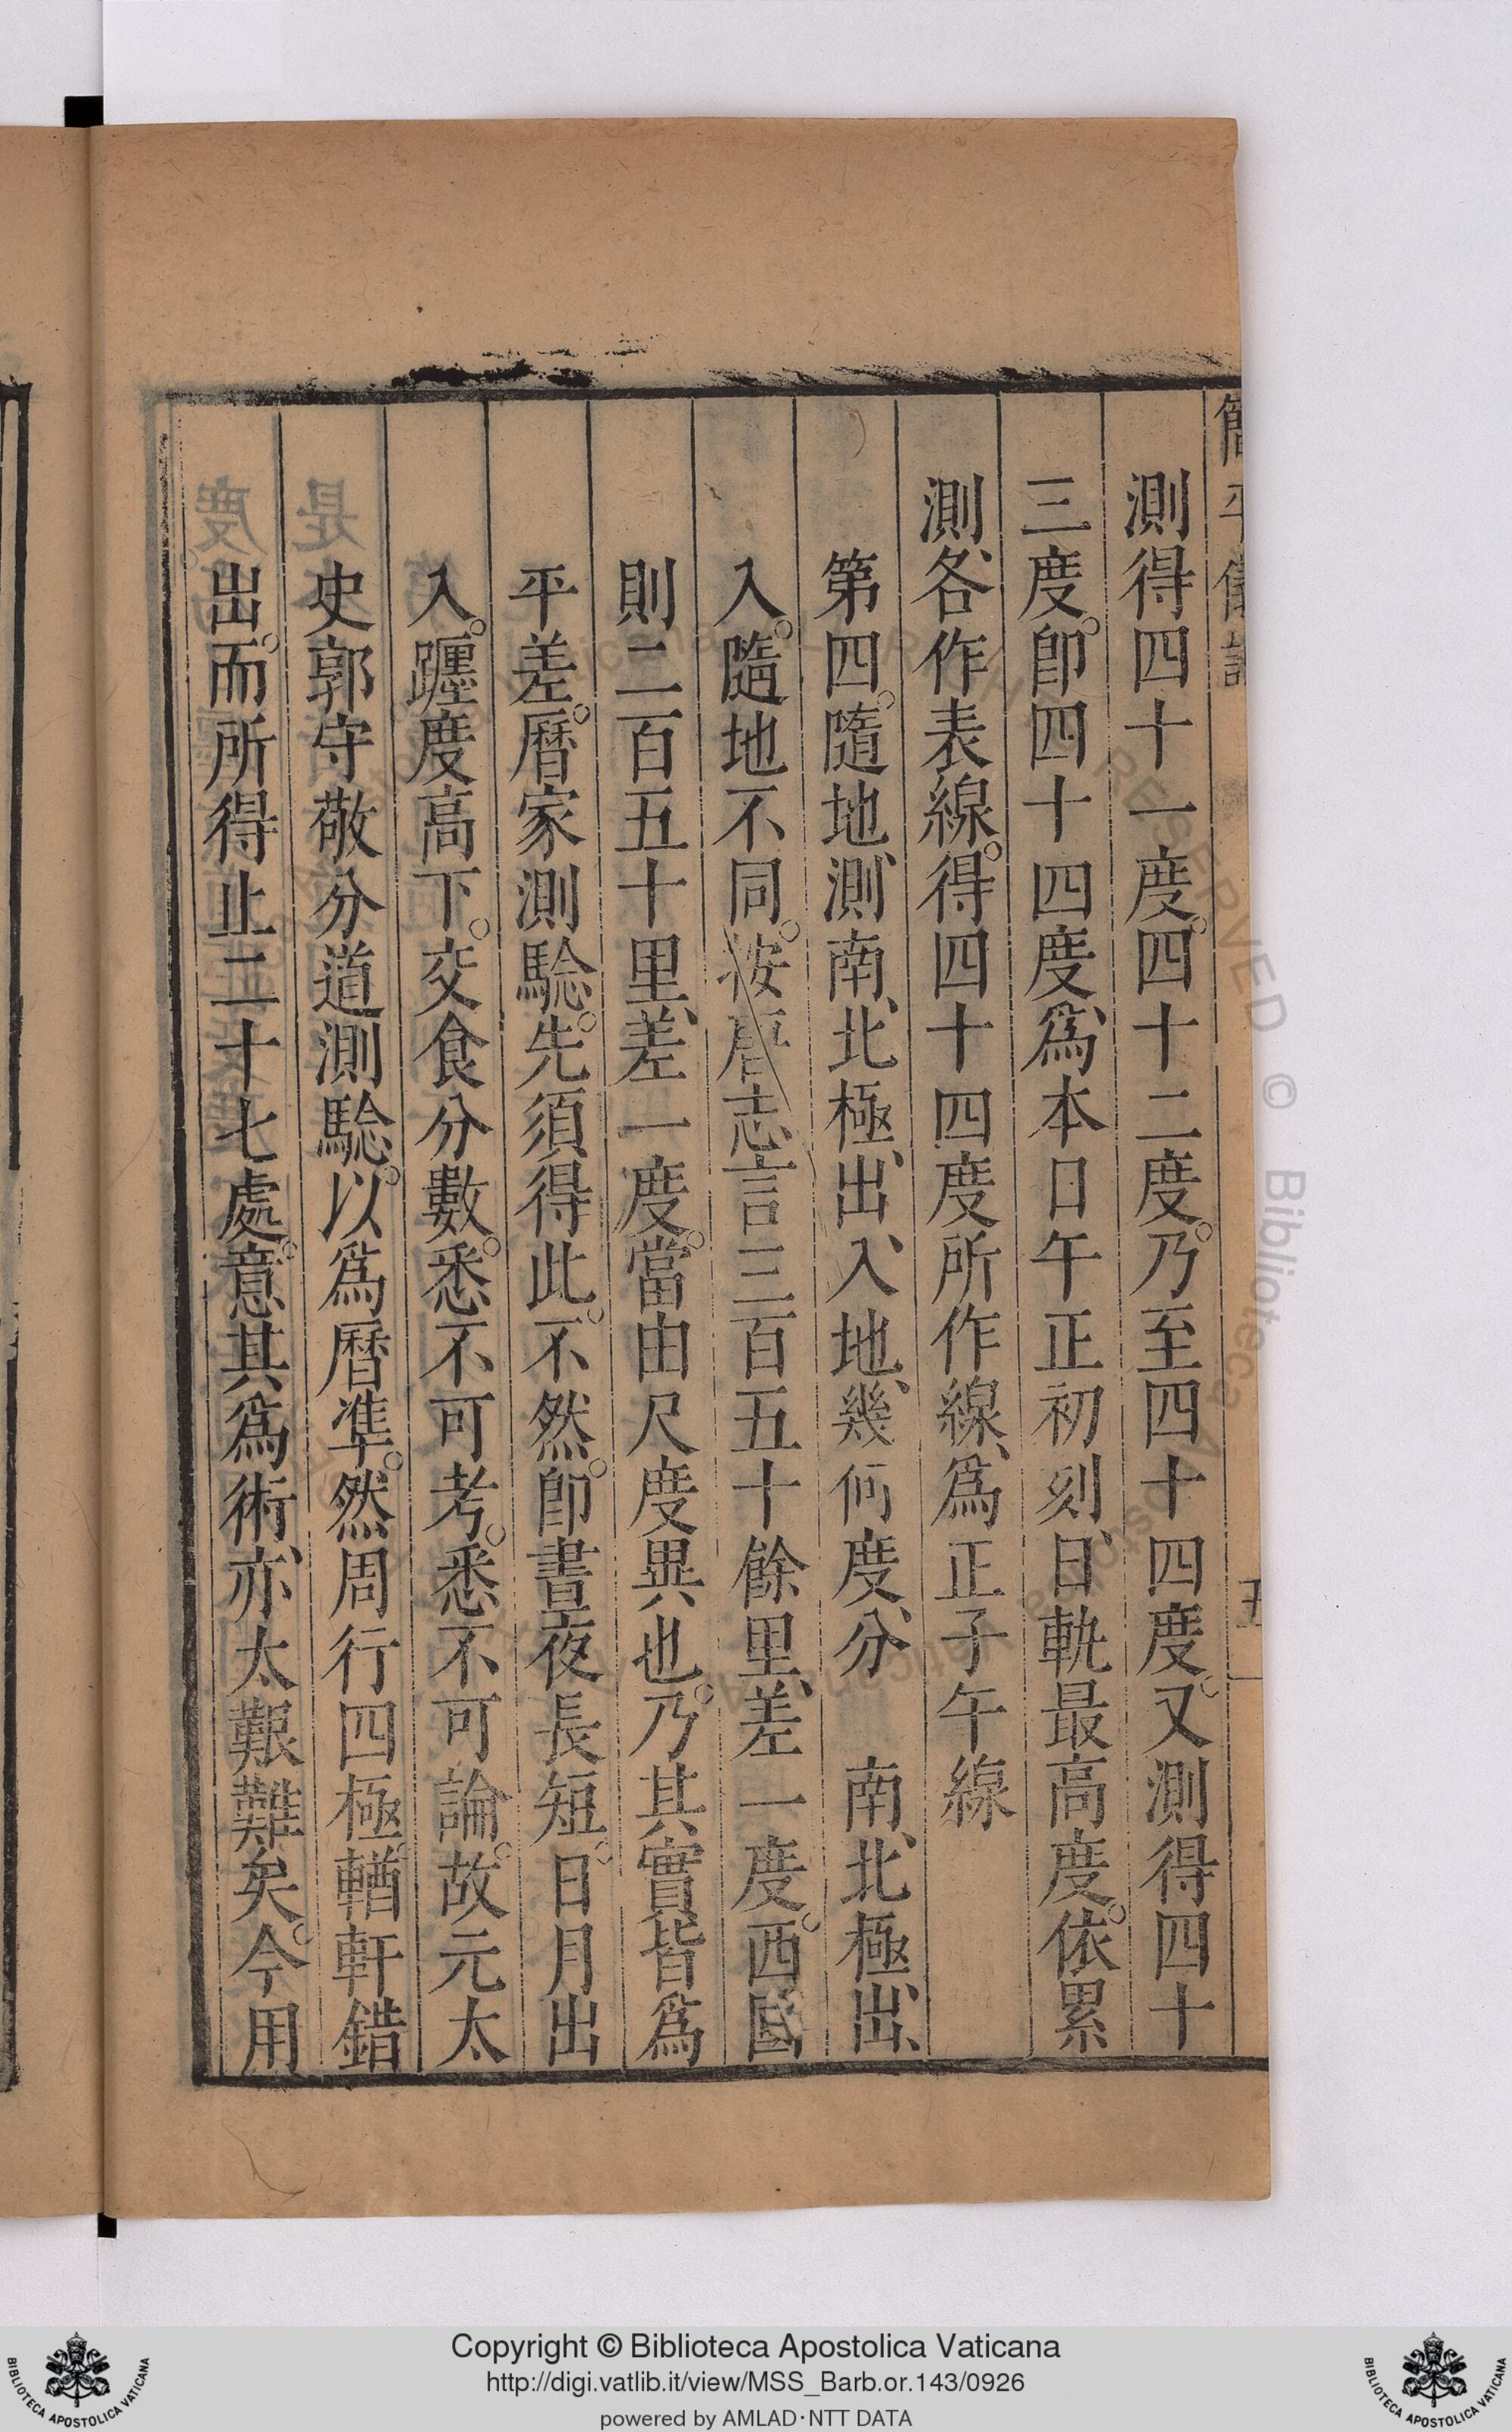 簡平儀說
五
測得四十一度。四十二度。乃至四十四度。又測得四十
三度。卽四十四度、爲本日午正初刻、日軌最高度。依累
測、各作表線。得四十四度所作線、爲正子午線
第四。隨地、測南、北極、出、入地、幾何度、分、 南、北極、出、
入。隨地不同。按唐志言三百五十餘里、差一度。西國
則二百五十里、差一度。當由尺度異也。乃其實皆爲
平差。曆家測驗。先須得此。不然。卽晝夜長短。日月出
入。躔度高下。交食分數。悉不可考。悉不可論。故元太
史郭守敬分道測驗。以爲曆準。然周行四極。輶軒錯
出。而所得止二十七處。意其爲術、亦、太艱難矣。今用
Copyright © Biblioteca Apostolica Vaticana
http://digi.vatlib.it/view/MSS_Barb.or.143/0926
powered by AMLAD·NTT DATA
BIBLIOTECA APOSTOLICA VATICANA
BIBLIOTECA APOSTOLICA VATICANA